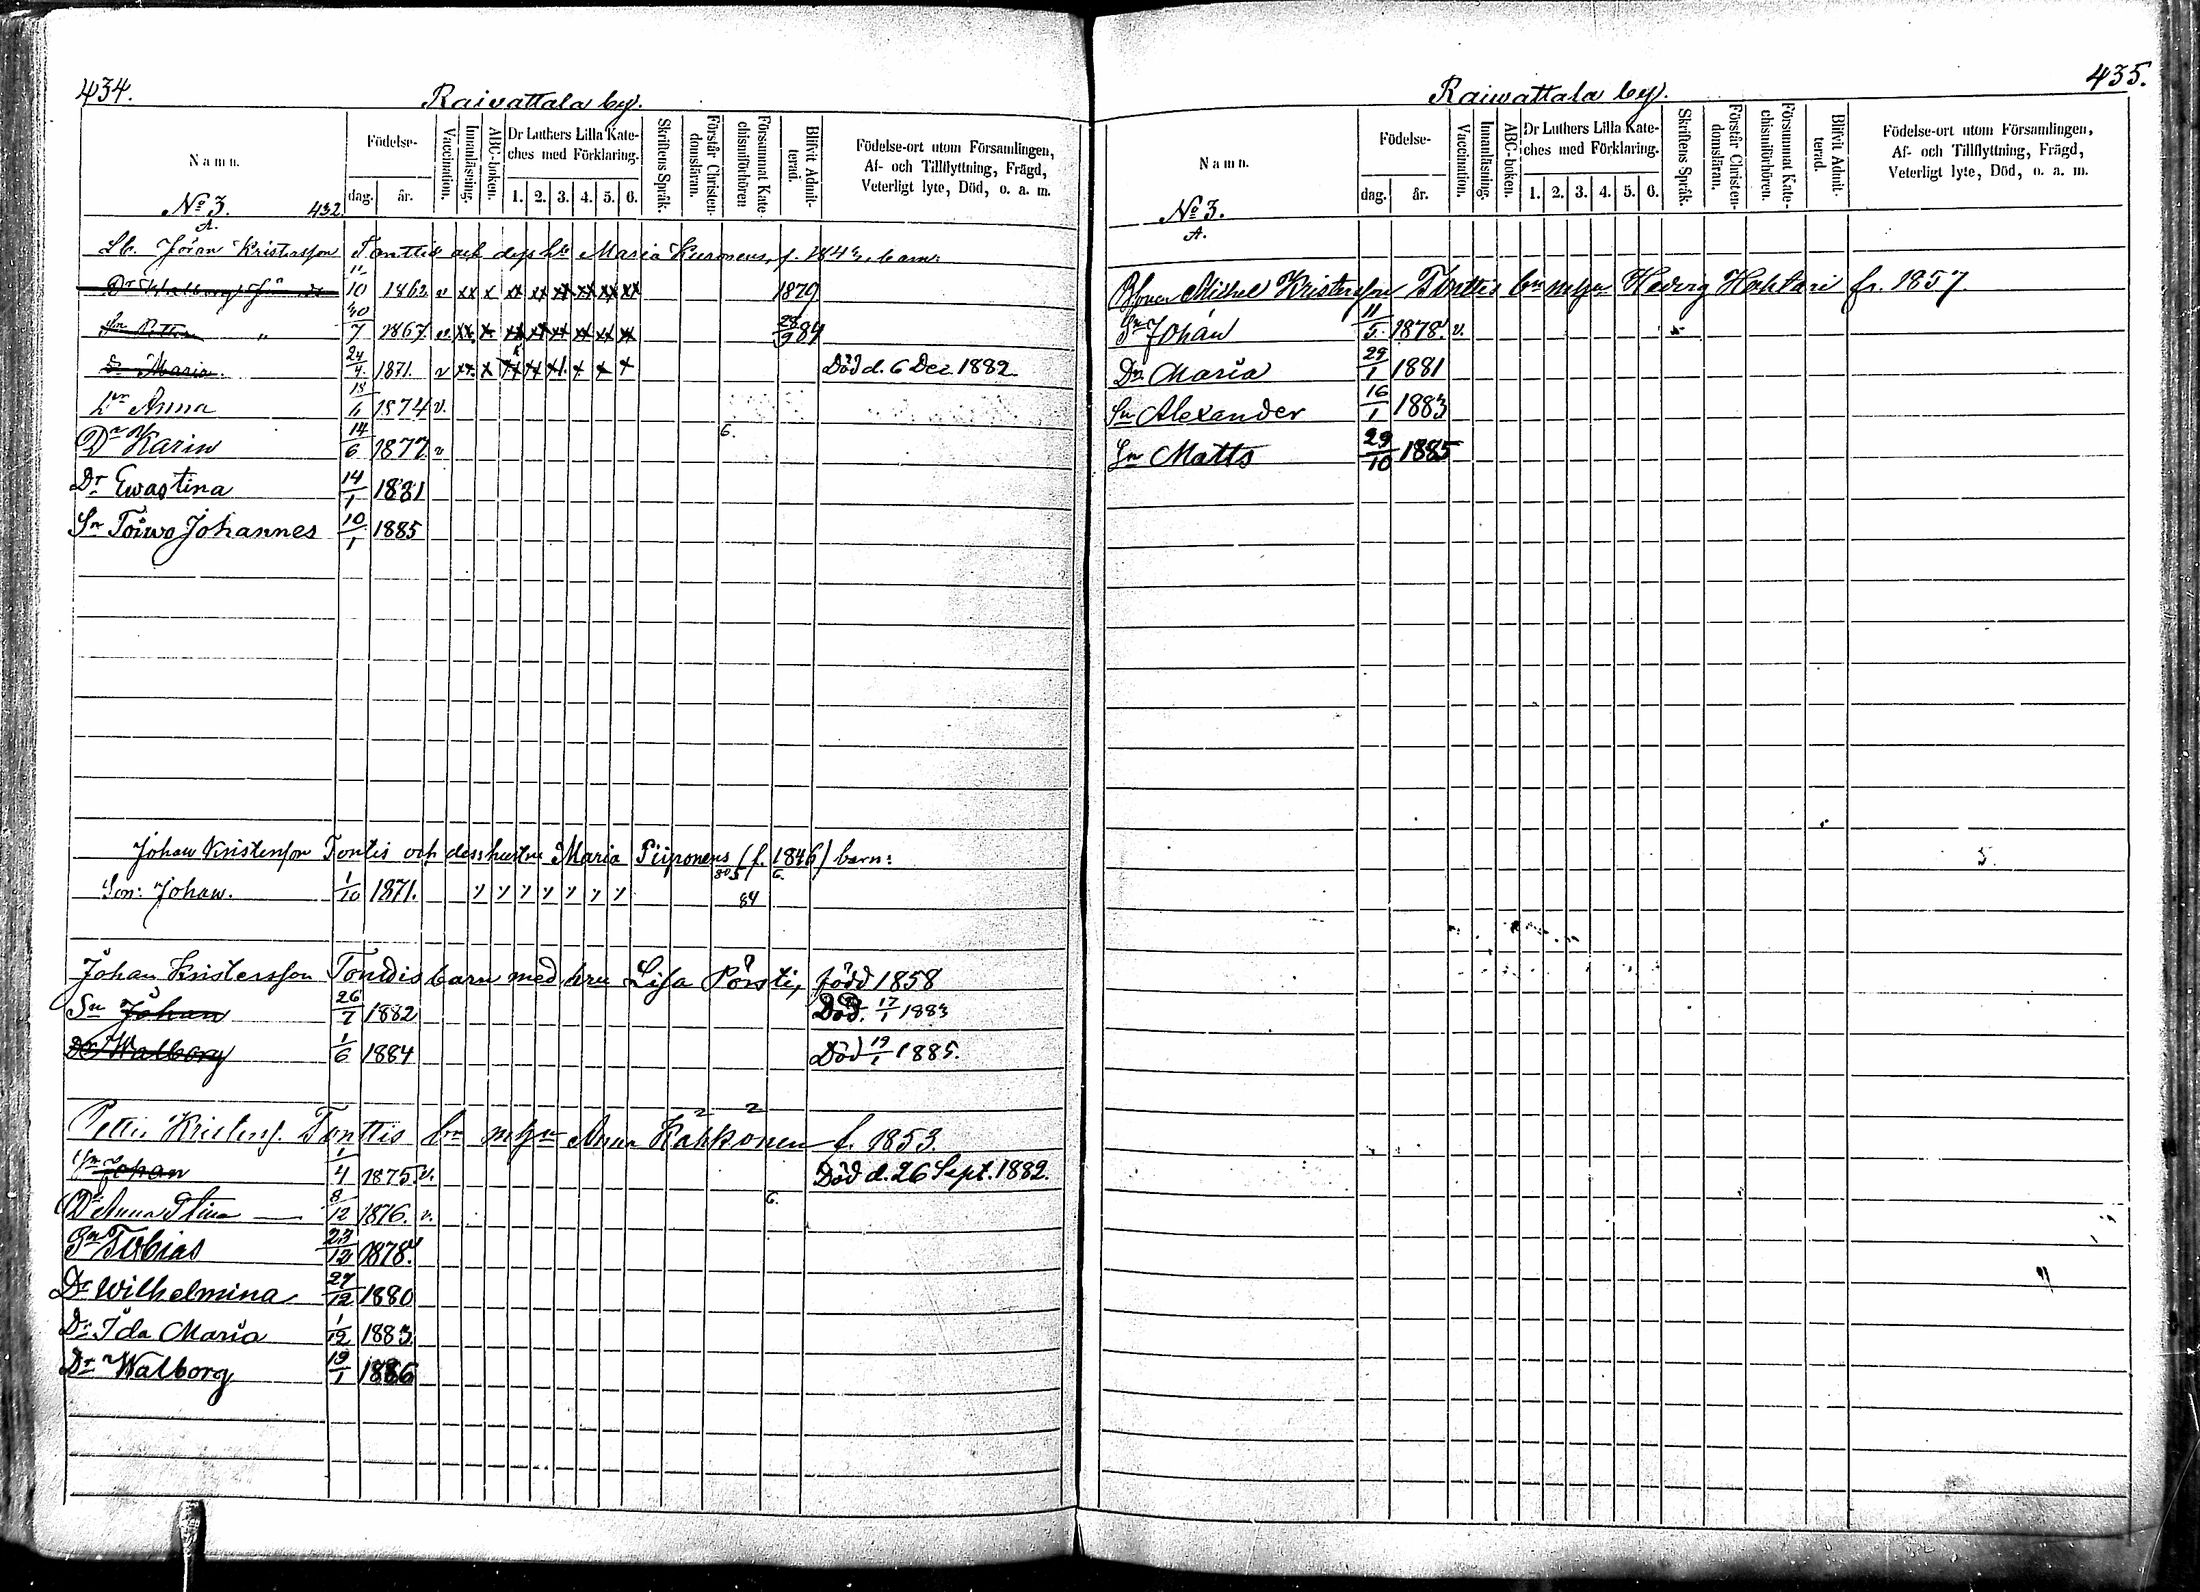 434.
Raivattala by.
Namn.
Födelse-
dag.
år.
Vaccination.
Innanläsning.
ABC-boken.
Dr Luthers Lilla Kate-
ches med Förklaring.
1. 2. 3. 4. 5. 6.
Skriftens Språk.
Förstår Christen-
domsläran.
Försummat Kate-
chismiförhören
Blifvit Admit-
terad.
Födelse-ort utom Församlingen,
Af- och Tillflyttning, Frägd,
Veterligt lyte, Död, o. a. m.
No 3. 432
A.
Lb. Jöran Kristersson Tonttis och dess h. Maria Kuronens, f. 1843, barn:
11/10 1862 v xx x xx xx xx xx xx xx 1879
Sn Petter " 30/7 1867. v xx x xx xx xx xx xx xx 28/9 84
D Maria. 24/4 1871. v xx x xx xx x x x x Död d. 6 Dec 1882
Dr Anna 18/6 1874 v.
Dr Karin 14/6 1877 v 6.
Dr Ewastina 14/1 1881
Sn Toiwo Johannes 10/1 1885
Johan Kristersson Tontis och dess hustru Maria Piiponens (f. 1846) barn:
Son: Johan. 1/10 1871. 84
Johan Kristersson Tondis barn med hru Lisa Pörsti, född 1858
Sn Johan 26/7 1882 Död. 17/1 1883
Dr Walborg 1/6 1884 Död 19/1 1885.
Petter Kristerss. Tonttis bn m hu Anna Kähkönen f. 1853.
Sn Johan 1/4 1875 v. Död d. 26 Sept. 1882.
Dr Anna Stina 8/12 1876. v. 6.
Sn Tobias 23/12 1878
Dr Wilhelmina 27/12 1880
Dr Ida Maria 1/12 1883.
Dr Walborg 19/1 1886
435.
Raiwattala by.
Namn.
Födelse-
dag.
år.
Vaccination.
Innanläsning.
ABC-boken.
Dr Luthers Lilla Kate-
ches med Förklaring.
1. 2. 3. 4. 5. 6.
Skriftens Språk.
Förstår Christen-
domsläran.
Försummat Kate-
chismiförhören.
Blifvit Admit-
terad.
Födelse-ort utom Församlingen,
Af- och Tillflyttning, Frägd,
Veterligt lyte, Död, o. a. m.
No 3.
A.
Mikel Kristersson Tonttis bn m hu Hedvig Hahtari f. 1857.
Sn Johan 11/5 1878. v.
Dr Maria 29/1 1881
Sn Alexander 16/1 1883
Sn Matts 29/10 1885
5.